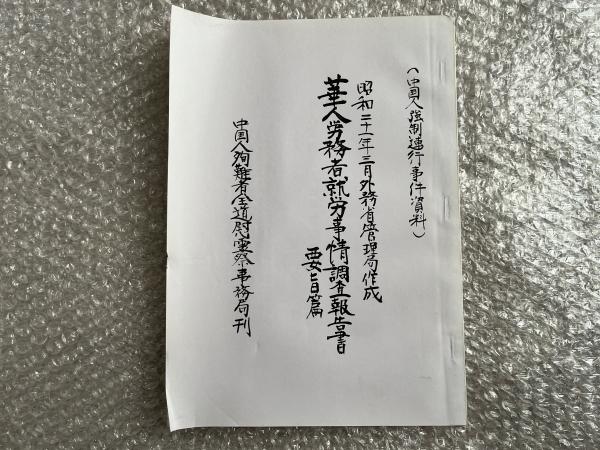 (中国人強制連行事件資料)
昭和二十一年三月外務省管理局作成
華人労務者就労事情調査報告書
要旨篇
中国人殉難者全道慰霊祭事務局刊